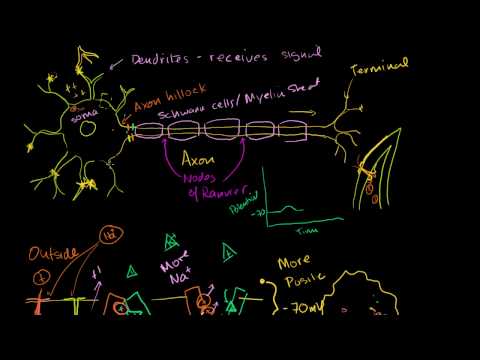 Dendrites - receives signal
Terminal
Axon hillock
soma
Schwann cells/ Myelin Sheat
Axon
Nodes
of Ranvier
Potential
-70
Time
Outside
+1
More
Na+
More
Positive
-70mV